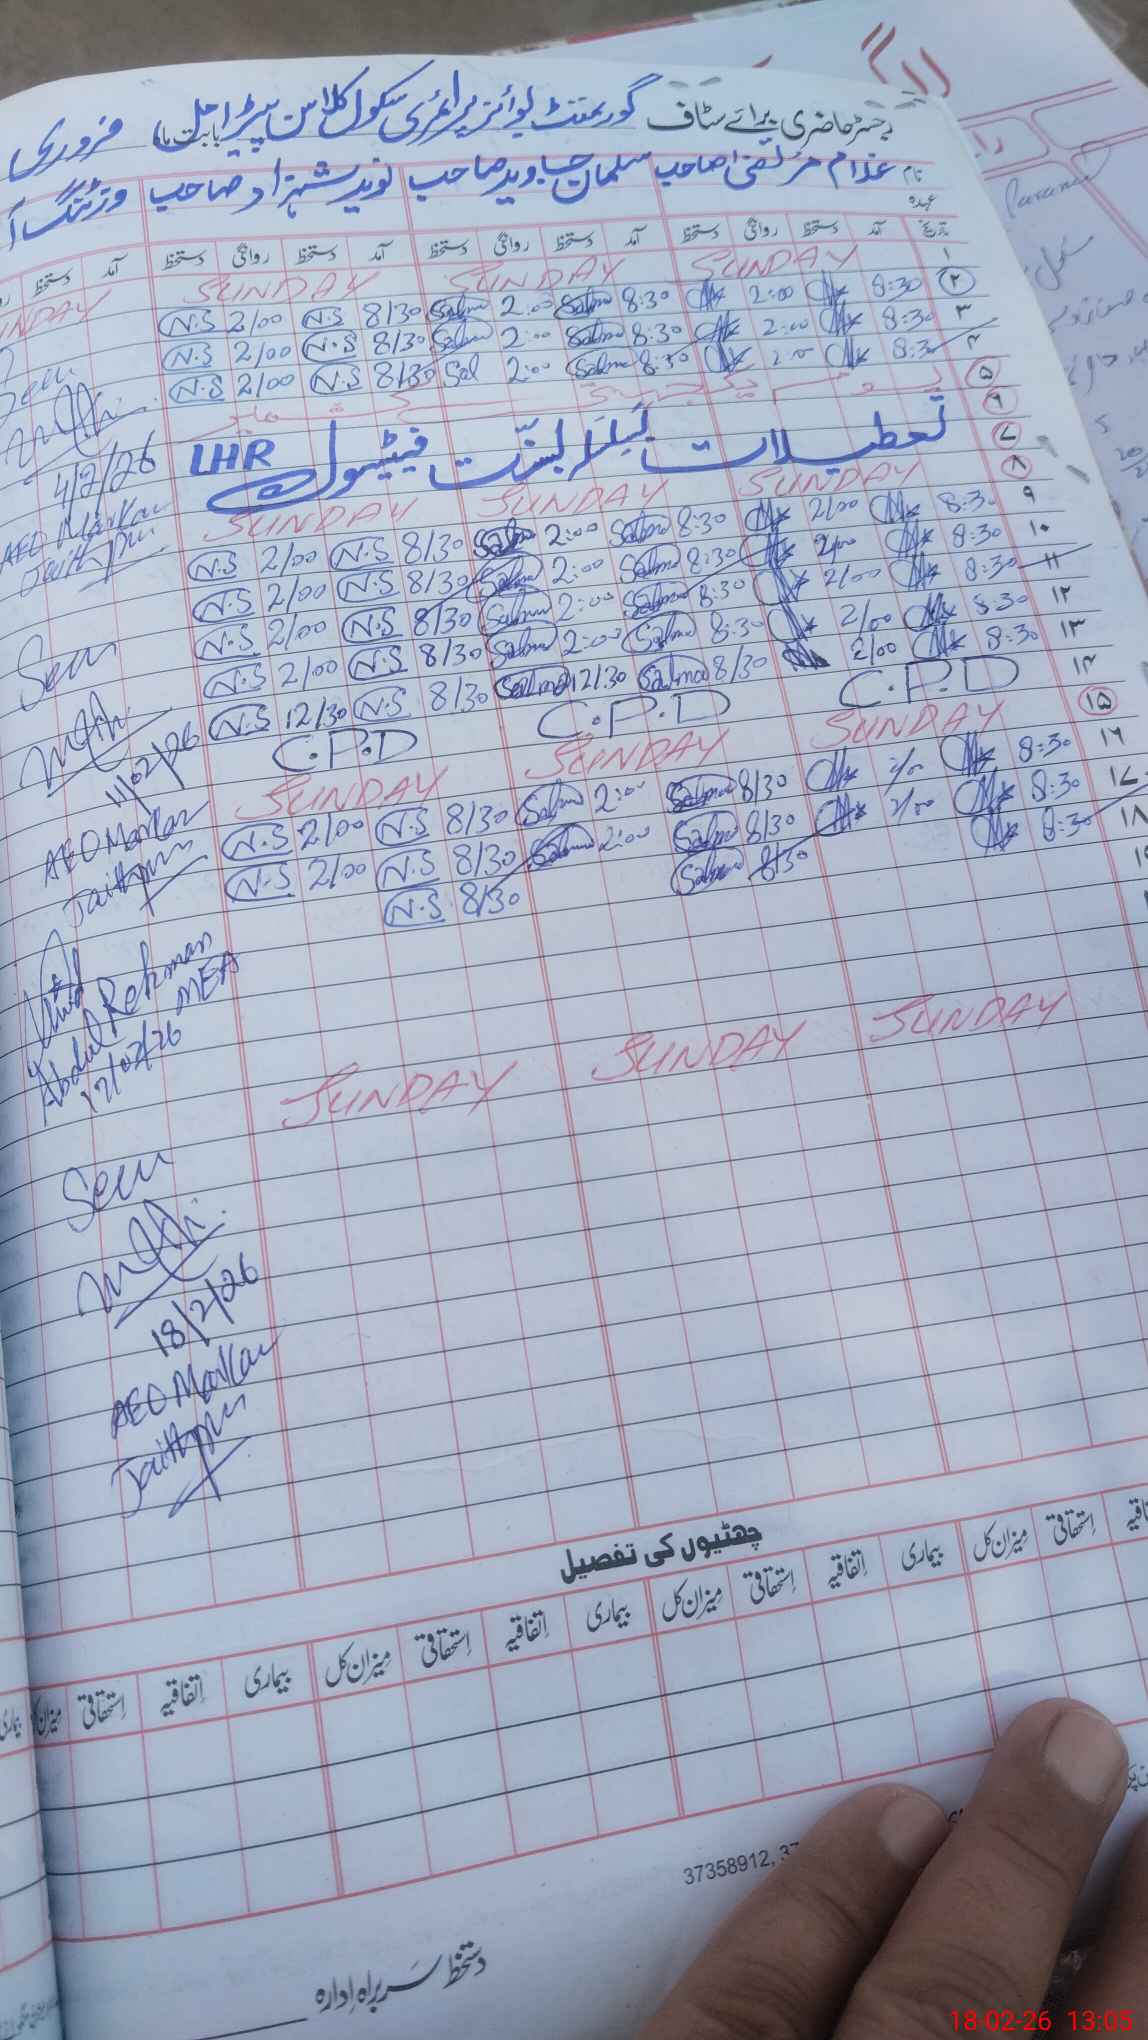 رجسٹر حاضری برائے سٹاف گورنمنٹ بوائز پرائمری سکول کلاس بابت ماہ فروری
نام غلام مرتضیٰ صاحب سلمان جاوید صاحب نوید شہزاد صاحب وزٹنگ
عہدہ
تاریخ آمد دستخط روانگی دستخط آمد دستخط روانگی دستخط آمد دستخط روانگی دستخط آمد دستخط
۱ SUNDAY SUNDAY SUNDAY
۲ 8:30 2:00 8:30 Salma 2:00 Salma 8/30 N.S 2/00 N.S
۳ 8:30 2:00 8:30 Salma 2:00 Salma 8/30 N.S 2/00 N.S
۴ 8:30 2:00 8:30 Salma 2:00 Sal 8/30 N.S 2/00 N.S
۵
۶ تعطیلات بسنت فیٹیول LHR
۷
۸ SUNDAY SUNDAY SUNDAY
۹ 8:30 2/00 8:30 Salma 2:00 Salma 8/30 N.S 2/00 N.S
۱۰ 8:30 2/00 8:30 Salma 2:00 Salma 8/30 N.S 2/00 N.S
۱۱ 8:30 2/00 8:30 Salma 2:00 Salma 8/30 N.S 2/00 N.S
۱۲ 8:30 2/00 8:30 Salma 2:00 Salma 8/30 N.S 2/00 N.S
۱۳ 8:30 2/00 8/30 Salma 12/30 Salma 8/30 N.S 12/30 N.S
۱۴ C.P.D C.P.D C.P.D
۱۵ SUNDAY SUNDAY SUNDAY
۱۶ 8:30 2/00 8/30 Salma 2:00 Salma 8/30 N.S 2/00 N.S
۱۷ 8:30 2/00 8/30 Salma 2:00 Salma 8/30 N.S 2/00 N.S
۱۸ 8:30 8/30 Salma 8/30 N.S
SUNDAY SUNDAY SUNDAY
Seen
4/2/26
AEO Markaz
Jaithpur
Seen
11/02/26
AEO Markaz
Jaithpur
Abdul Rehman
MEA
17/02/26
Seen
18/2/26
AEO Markaz
Jaithpur
چھٹیوں کی تفصیل
اتفاقیہ استحقاقی میزان کل بیماری اتفاقیہ استحقاقی میزان کل بیماری اتفاقیہ استحقاقی میزان کل بیماری اتفاقیہ استحقاقی میزان کل بیماری
37358912, 37
دستخط سربراہ ادارہ
18-02-26 13:05